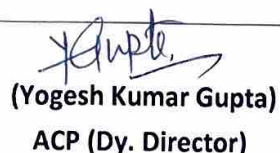 YGupte
(Yogesh Kumar Gupta)
ACP (Dy. Director)